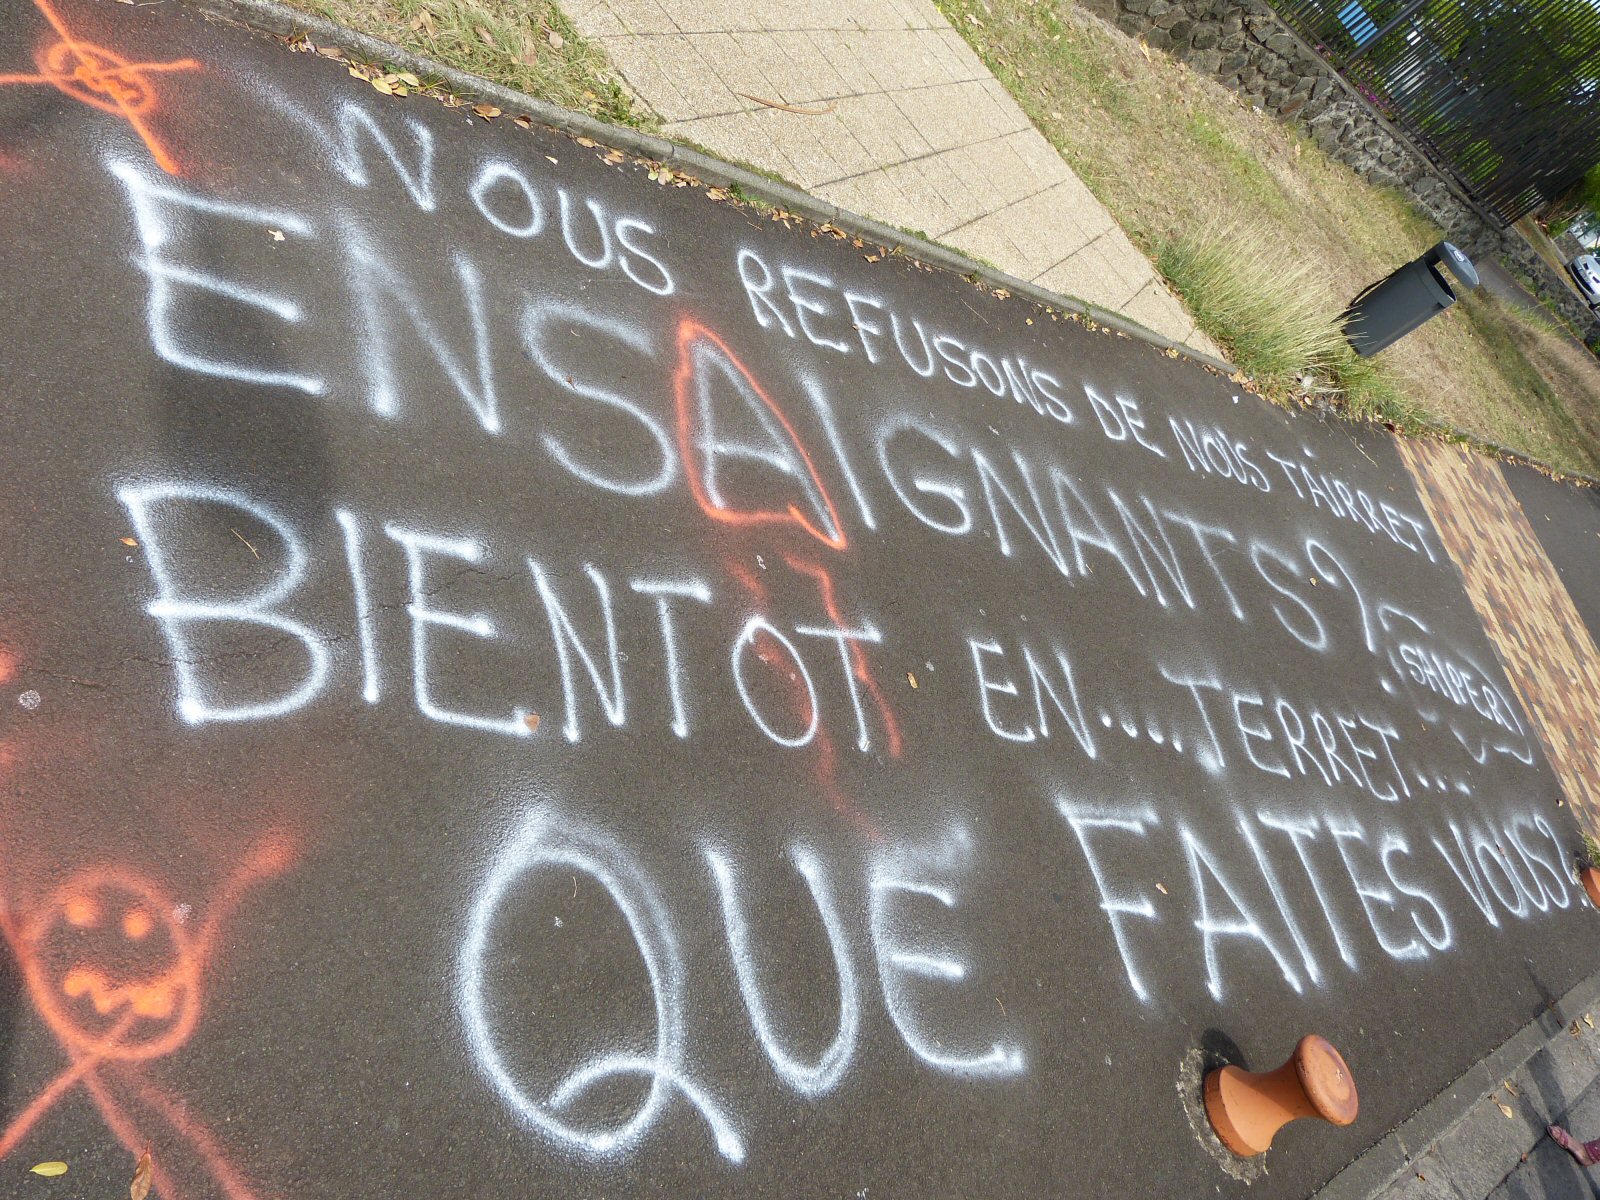 NOUS REFUSONS DE NOUS TAIRRET
ENSAIGNANTS?
BIENTOT EN...TERRET....
QUE FAITES VOUS?